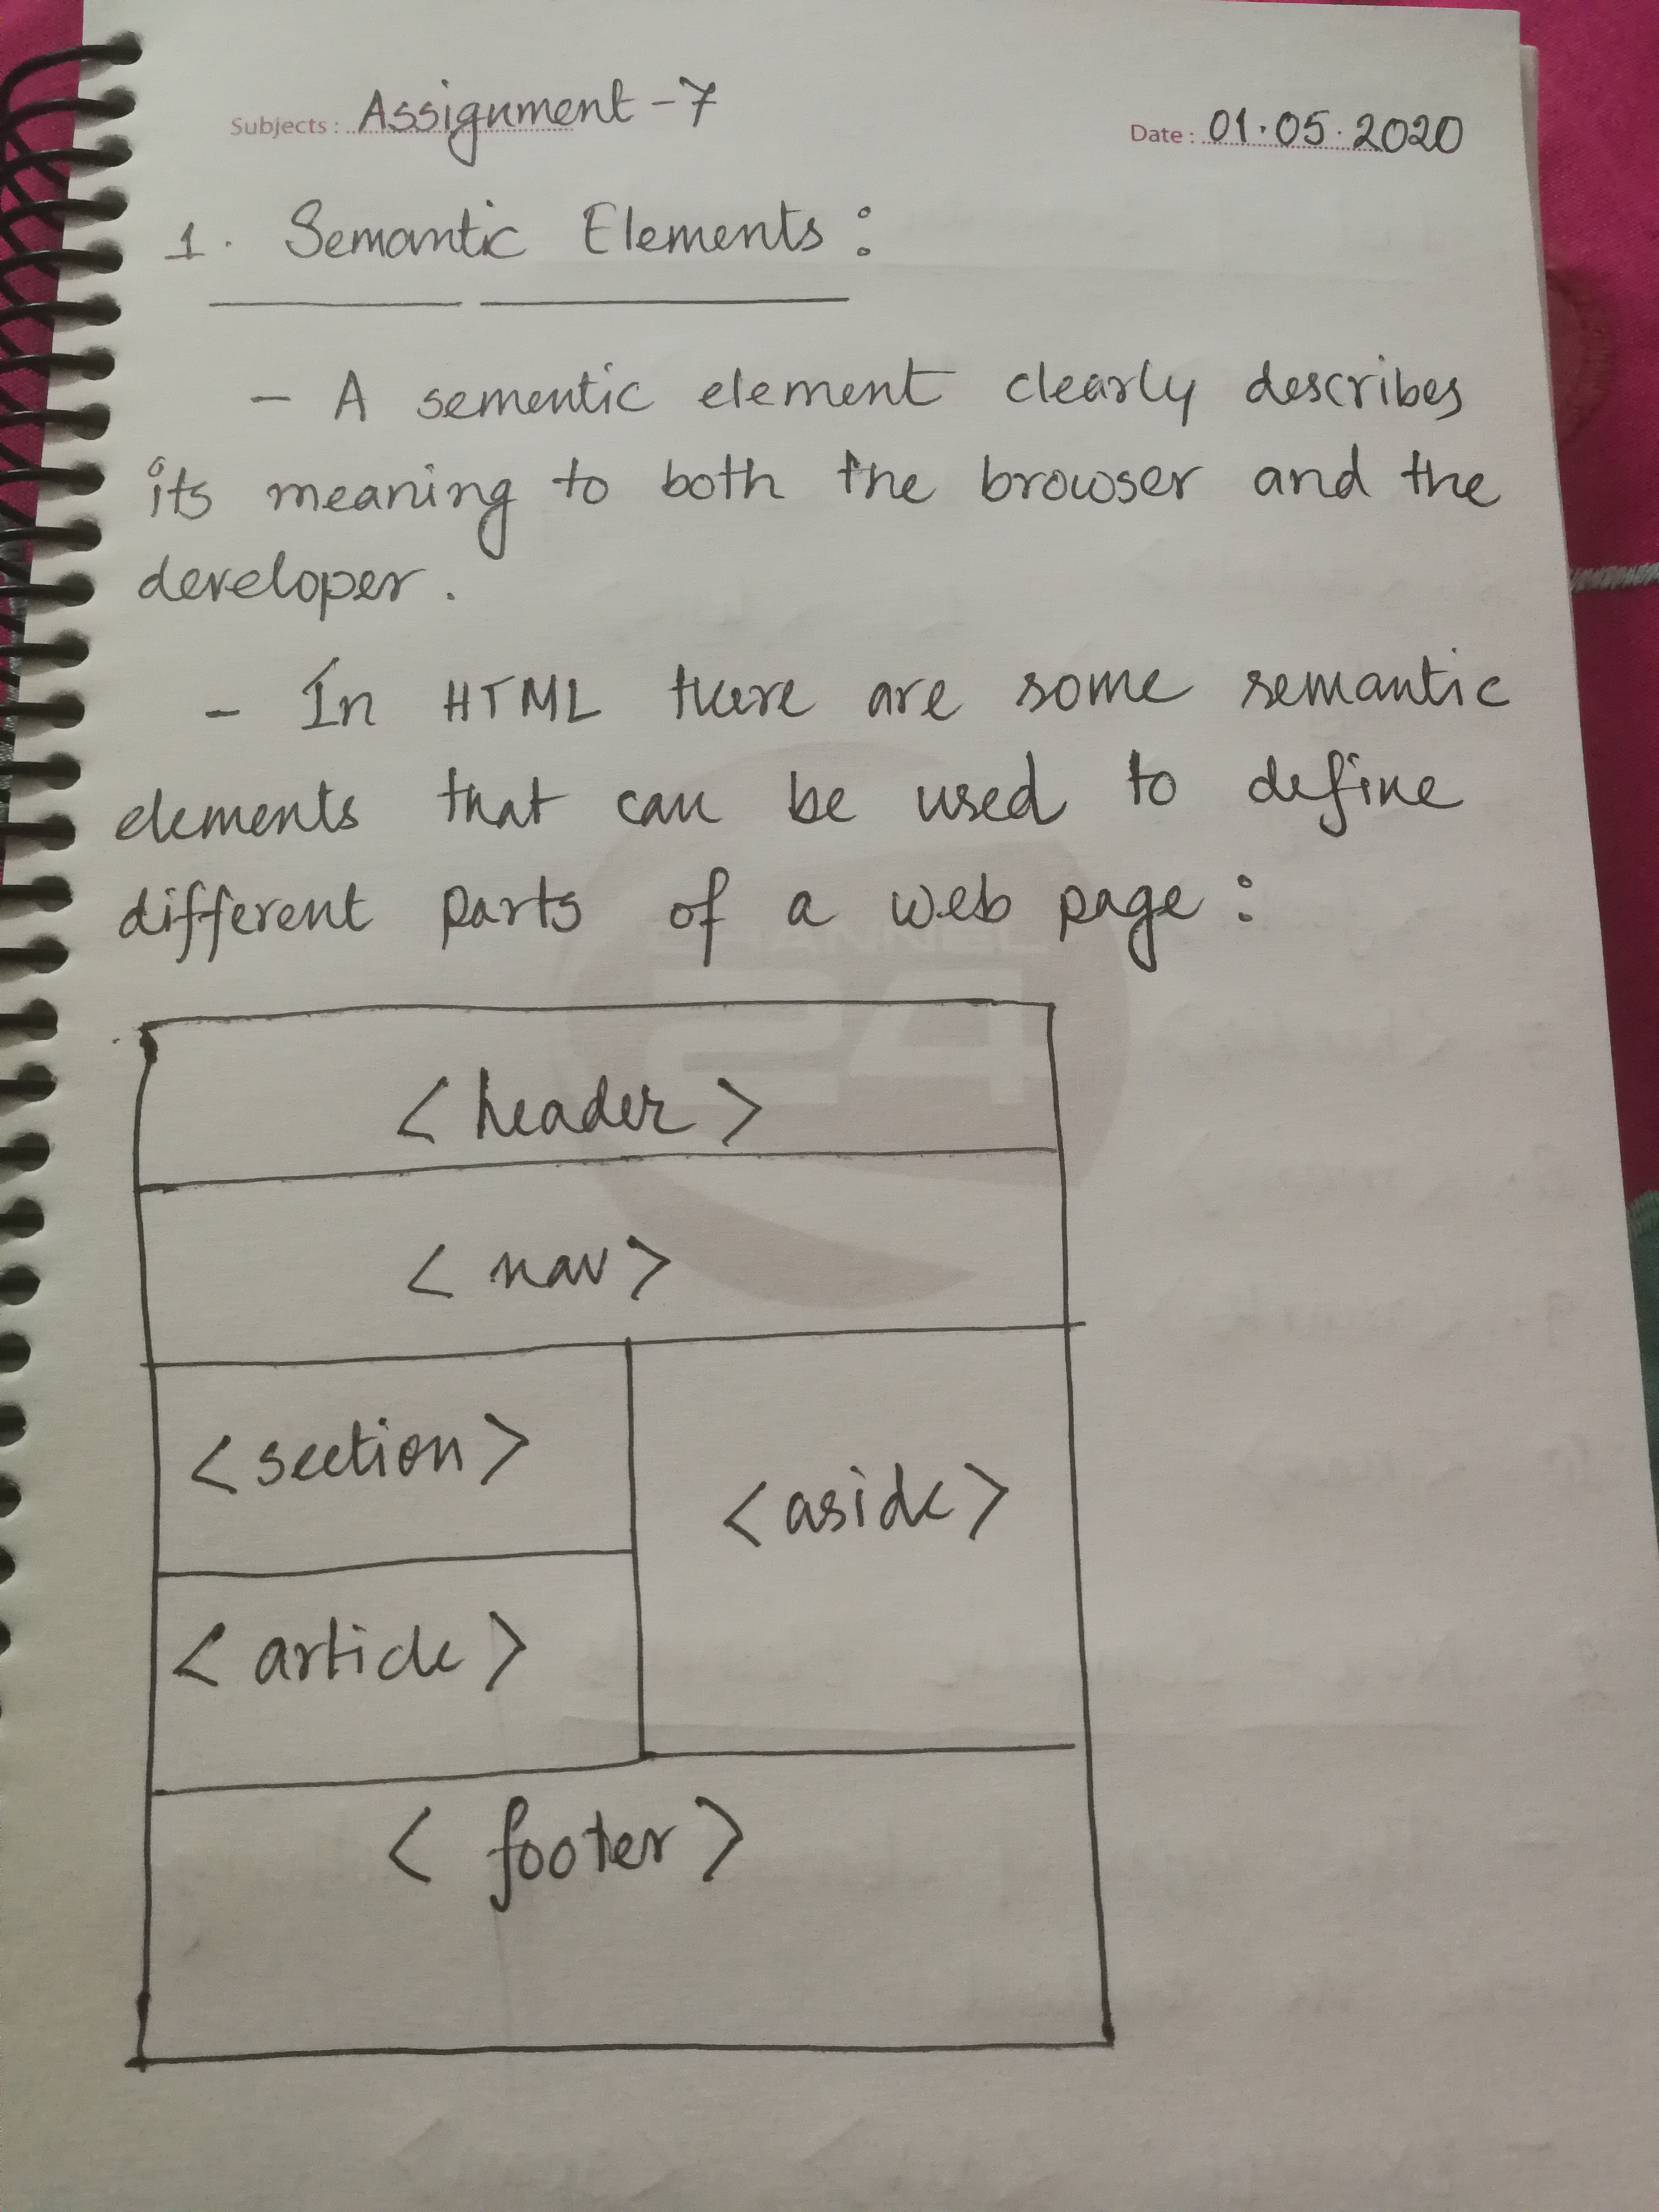 Subjects : Assignment - 7
Date : 01.05.2020
1. Semantic Elements :
- A sementic element clearly describes
its meaning to both the browser and the
developer.
- In HTML there are some semantic
elements that can be used to define
different parts of a web page :
CHANNEL
24
< header >
< nav >
< section >
< aside >
< article >
< footer >